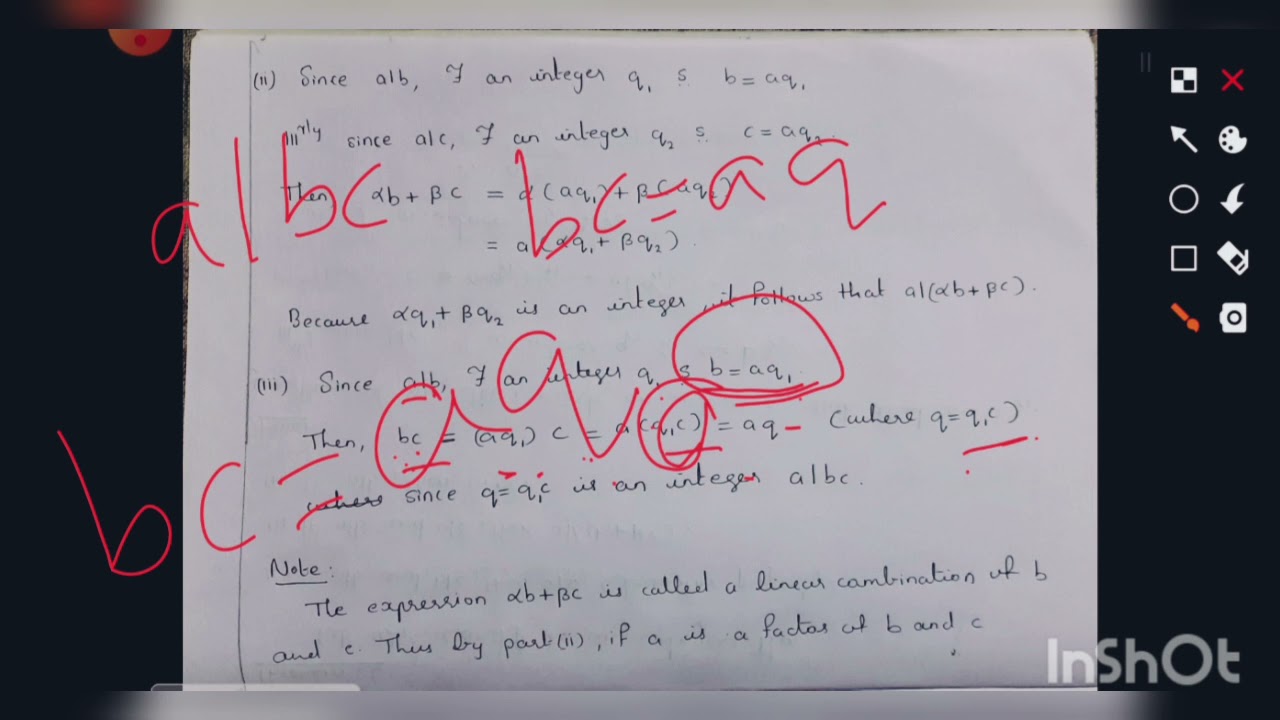 (ii) Since a|b, ∃ an integer q₁ s b = aq₁
|||rly since a|c, ∃ an integer q₂ s. c = aq₂
Then, αb + βc = α(aq₁) + β(aq₂)
= a(αq₁ + βq₂).
Because αq₁ + βq₂ is an integer, it follows that a|(αb + βc).
(iii) Since a|b, ∃ an integer q₁ s b = aq₁
Then, bc = (aq₁) c = a(q₁c) = aq (where q = q₁c)
since q = q₁c is an integer a|bc.
Note:
The expression αb+βc is called a linear combination of b
and c. Thus by part (ii), if a is a factor of b and c
a|bc
bc = aq
bc = aq
InShOt